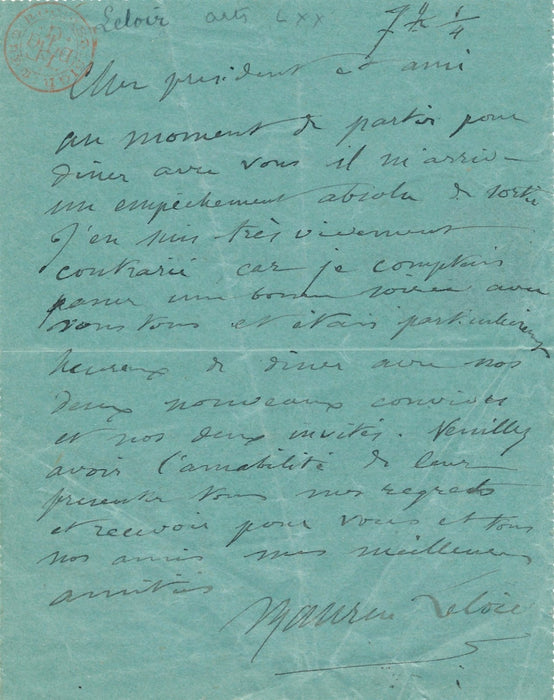 Leloir arts LXX
7 h 1/4
Cher président et ami
au moment de partir pour
dîner avec vous il m'arrive
un empêchement absolu de sortir
J'en suis très vivement
contrarié car je comptais
passer une bonne soirée avec
vous tous et étais particulièrement
heureux de dîner avec nos
deux nouveaux convives
et nos deux invités. Veuillez
avoir l'amabilité de leur
présenter tous mes regrets
et recevoir pour vous et tous
nos amis mes meilleures
amitiés
Maurice Leloir